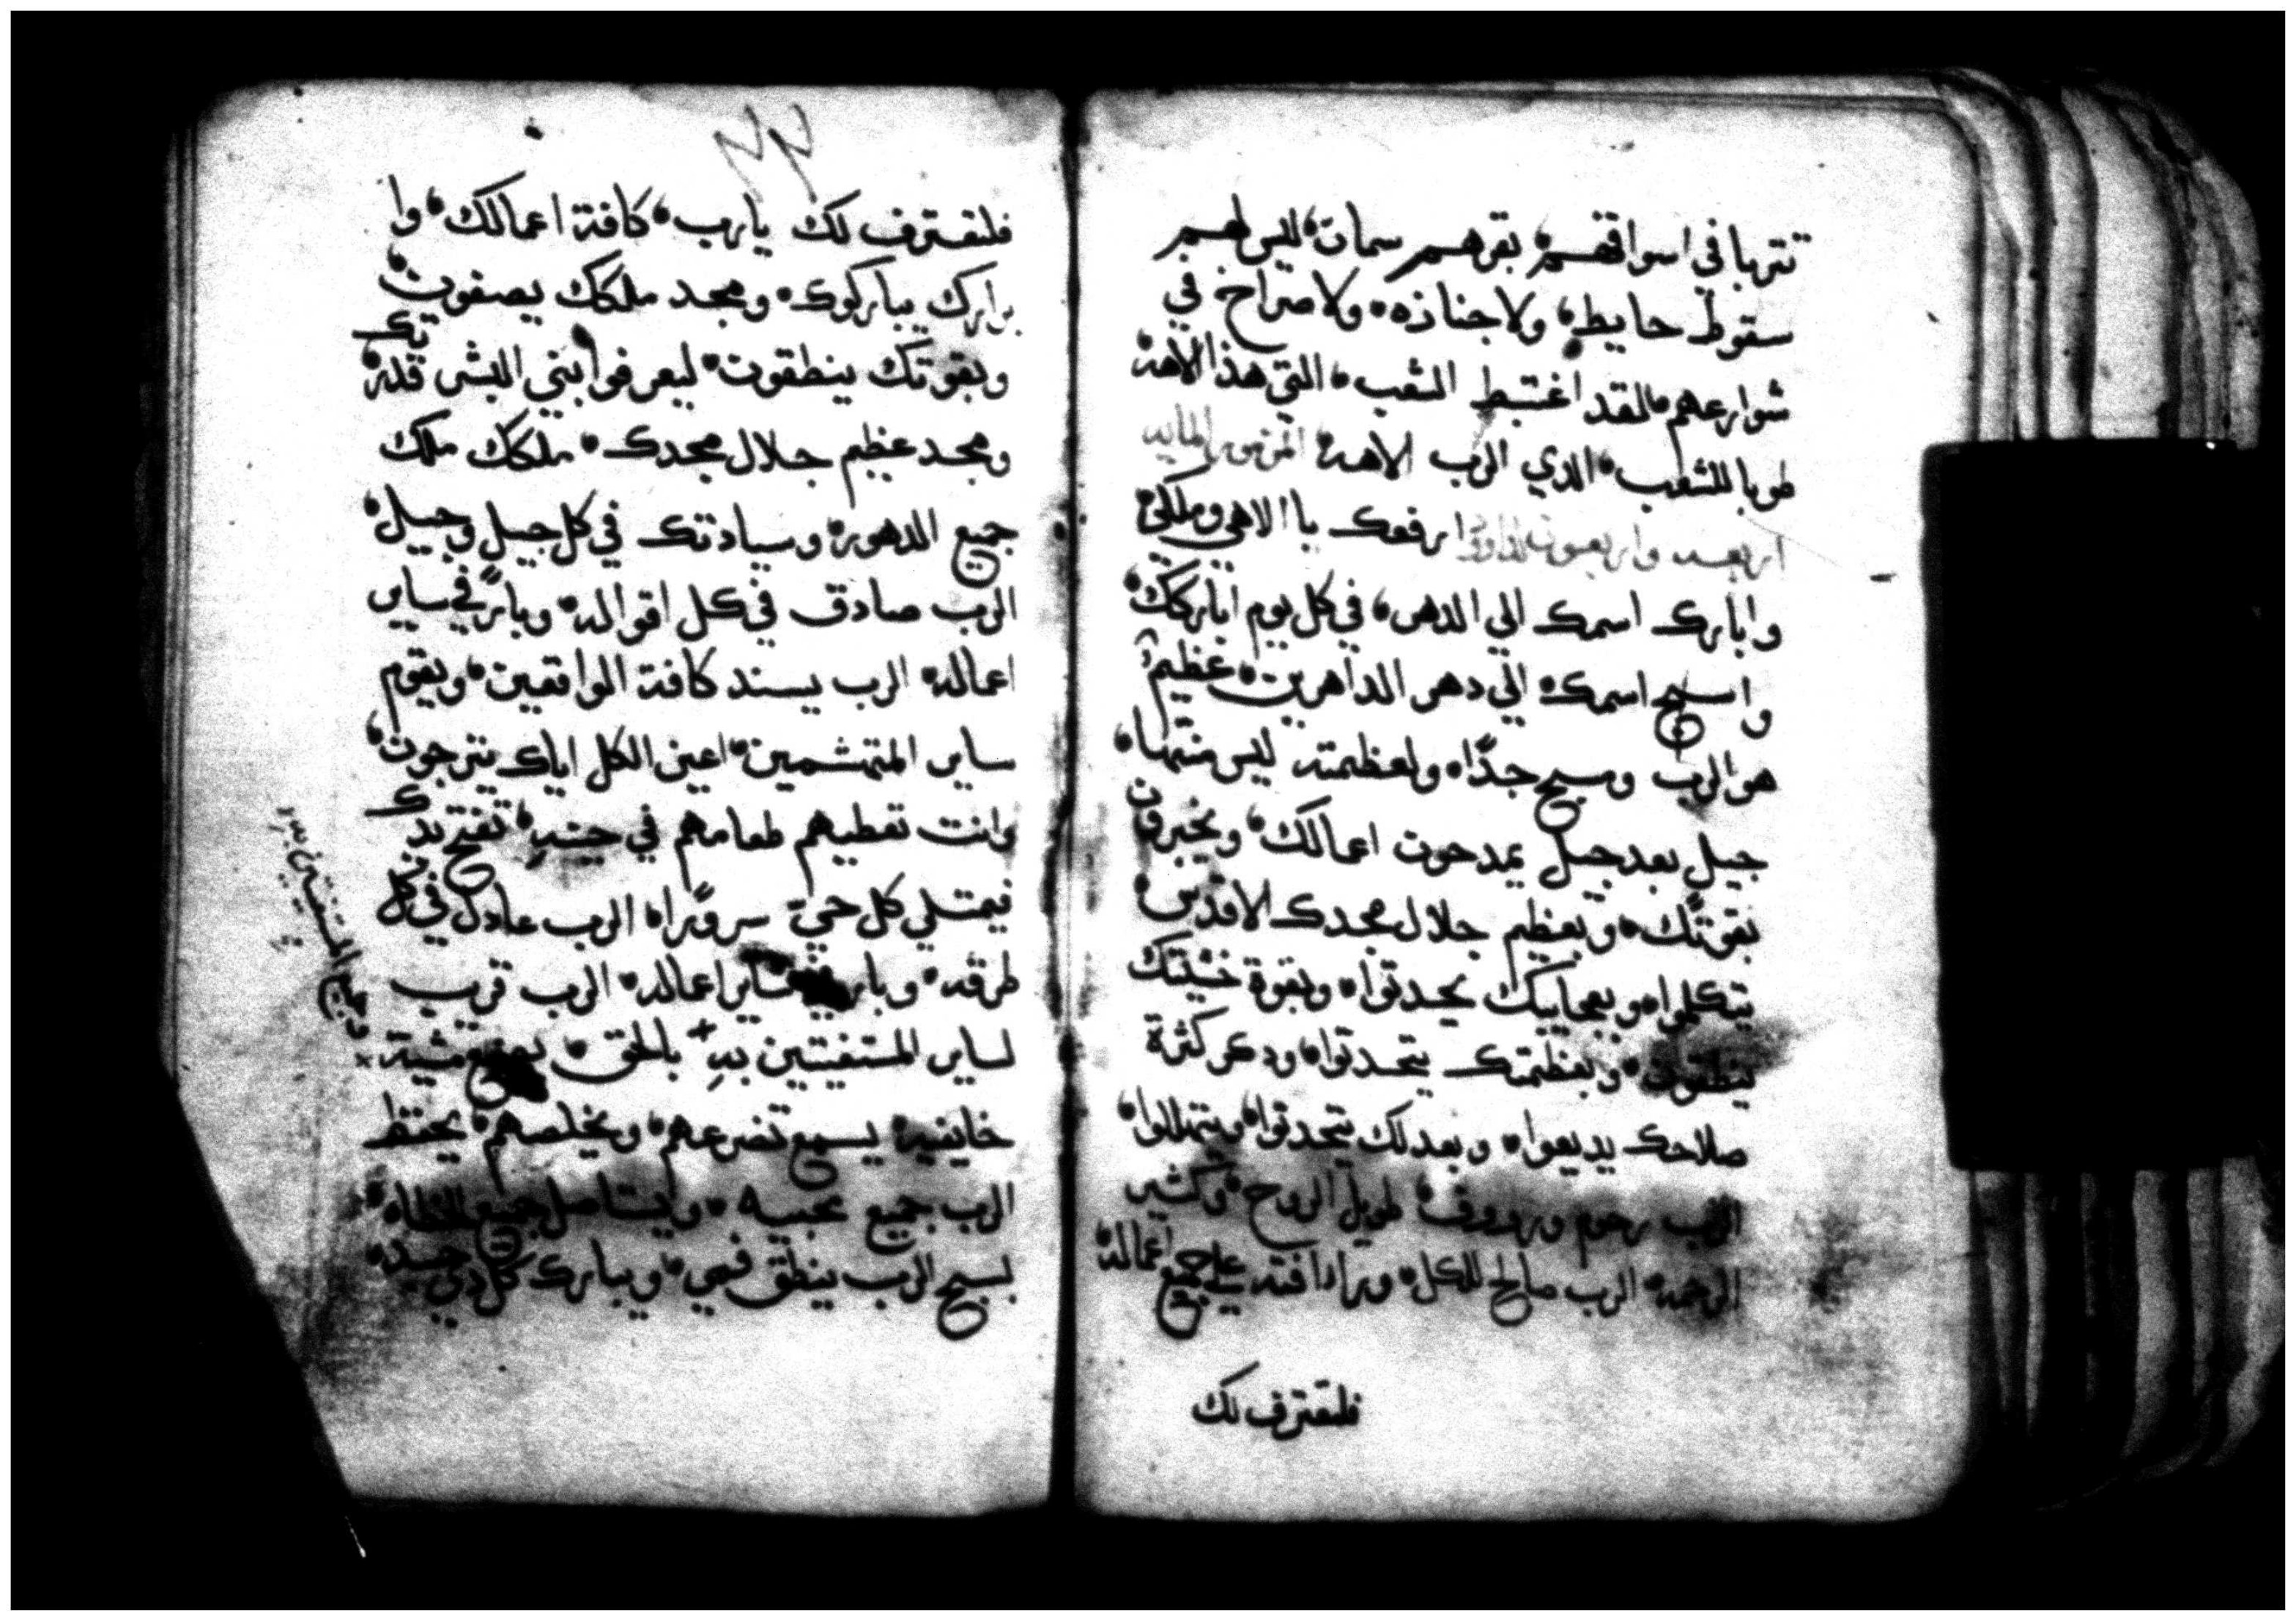 تتربا في اسواقهم، بقرهم سمان، ليس لهم
سقوط حايط، ولا جنازه، ولا صراخ في
شوارعهم، لقد اغتبط الشعب، التي هذا الاهه
طوبا للشعب، الدي الرب الاهه، المزمور المايه
اربعه واربعون لداود ارفعك يا الاهي وملكي،
وابارك اسمك الي الدهر، في كل يوم اباركك،
واسبح اسمك، الي دهر الداهرين، عظيم
هو الرب ومسبح جدًا، ولعظمته ليس منتها،
جيل بعد جيل يمدحون اعمالك، ويخبرون
بقوتك، وبعظيم جلال مجدك الاقدس،
يتكلموا، وبعجايبك يحدثوا، وبقوة خشيتك
ينطقون، وبعظمتك يتحدثوا، ودكر كثرة
صلاحك يديعوا، وبعدلك يتحدثوا، ويتهللوا،
الرب رحوم ورووف، طويل الروح، وكثير
الرحمه، الرب صالح للكل، ورادافته علي جميع اعماله
فلتعترف لك
فلتعترف لك يارب، كافة اعمالك، وا
برارك يباركوك، ومجد ملكك يصفون،
وبقوتك ينطقون، ليعرفوا بني البشر قدرتك
ومجد عظيم جلال مجدك، ملكك ملك
جميع الدهور، وسيادتك في كل جيل وجيل،
الرب صادق في كل اقواله، وبارً في ساير
اعماله، الرب يسند كافة الواقعين، ويقوم
ساير المتهشمين، اعين الكل اياك يترجون،
وانت تعطيهم طعامهم في حينهِ، تفتح يدك
فيمتلي كل حي سرورًا، الرب عادل في كل
طرقه، وبار في ساير اعماله، الرب قريب
لساير المستغيتين بهِ + بالحق، يصنع مشية
خايفيه، يسمع تضرعهم، ويخلصهم، يحفظ
الرب جميع محبيه، ويستاصل جميع الخطاه،
بسبح الرب ينطق فمي، ويبارك كل دي جسد،
وجميع المستغيتين به